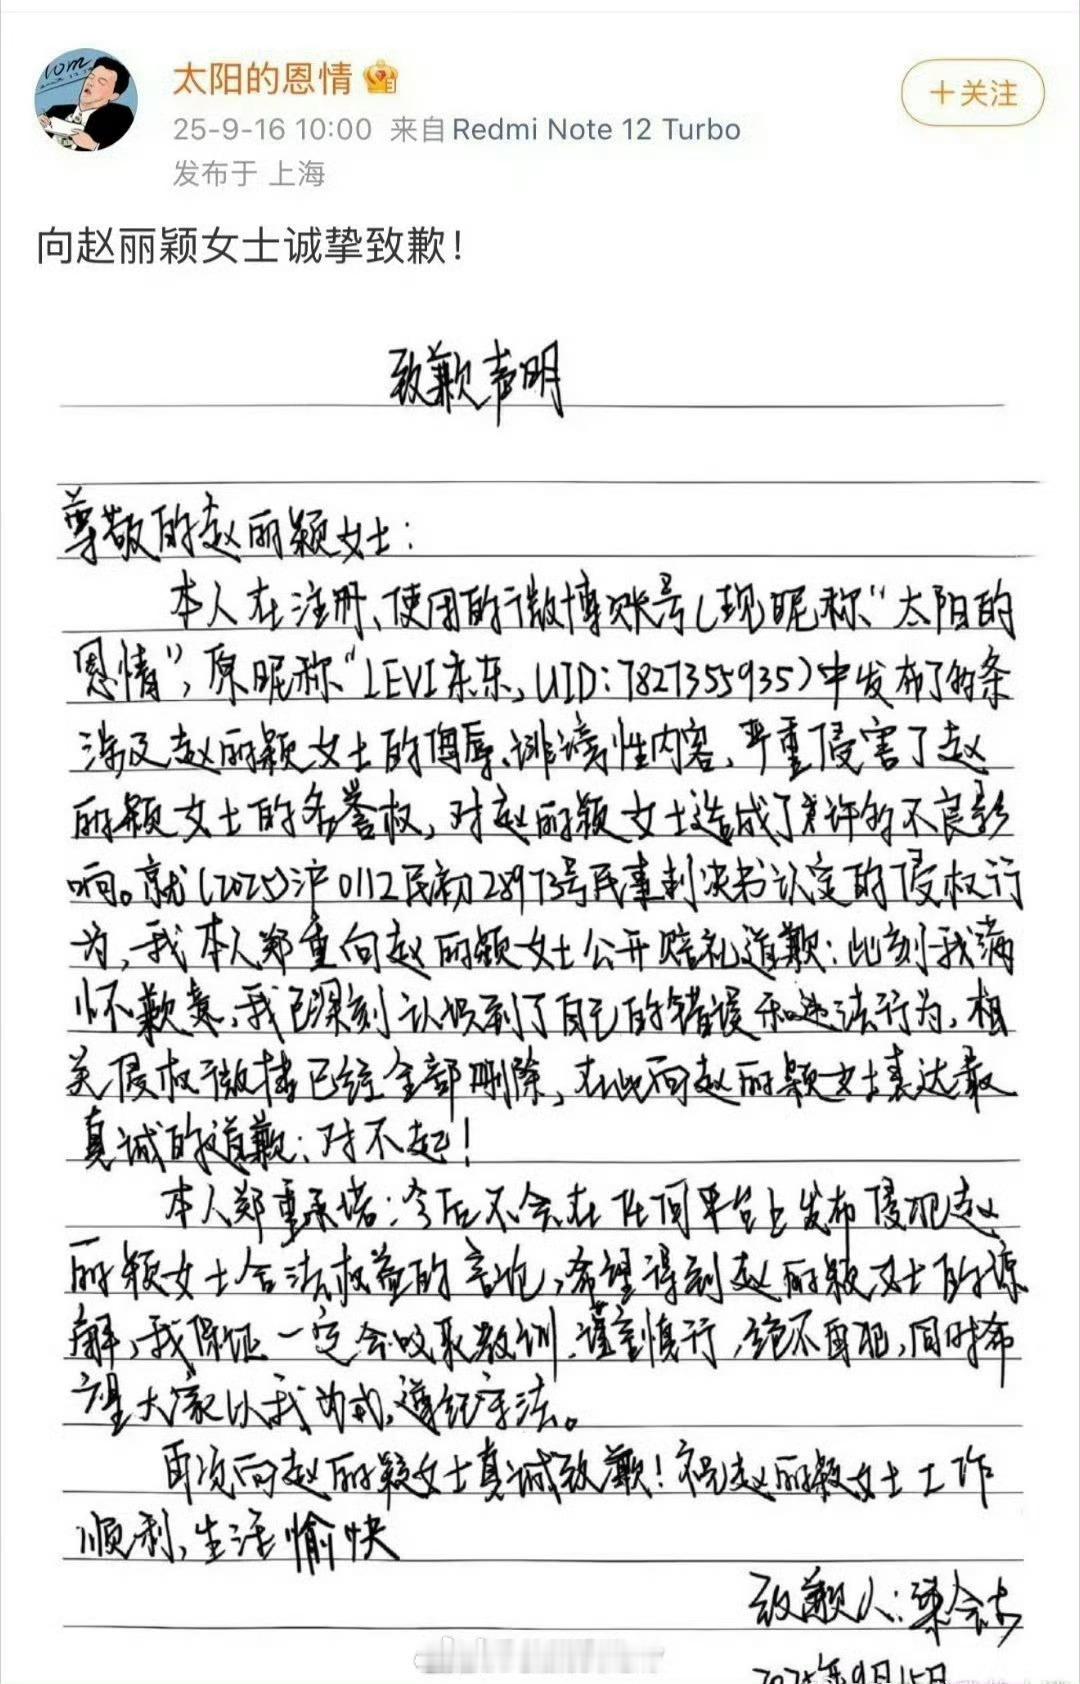 太阳的恩情
25-9-16 10:00 来自 Redmi Note 12 Turbo
发布于 上海
+关注
向赵丽颖女士诚挚致歉！
致歉声明
尊敬的赵丽颖女士：
本人在注册、使用的微博账号（现昵称“太阳的
恩情”，原昵称“LEVI东东，UID：7827355935）中发布了的条
涉及赵丽颖女士的侮辱、诽谤性内容，严重侵害了赵
丽颖女士的名誉权，对赵丽颖女士造成了许的不良影
响。就（2025）沪0112民初28973号民事判决书认定的侵权行
为，我本人郑重向赵丽颖女士公开赔礼道歉：此刻我满
怀歉意，我已深刻认识到了自己的错误和违法行为，相
关侵权微博已经全部删除，在此向赵丽颖女士表达最
真诚的道歉：对不起！
本人郑重承诺：今后不会在任何平台上发布侵犯赵
丽颖女士合法权益的言论，希望得到赵丽颖女士的谅
解，我保证一定会吸取教训、谨言慎行，绝不再犯，同时希
望大家以我为戒，遵纪守法。
再次向赵丽颖女士真诚致歉！祝赵丽颖女士工作
顺利，生活愉快
致歉人：梁会
2025年9月15日